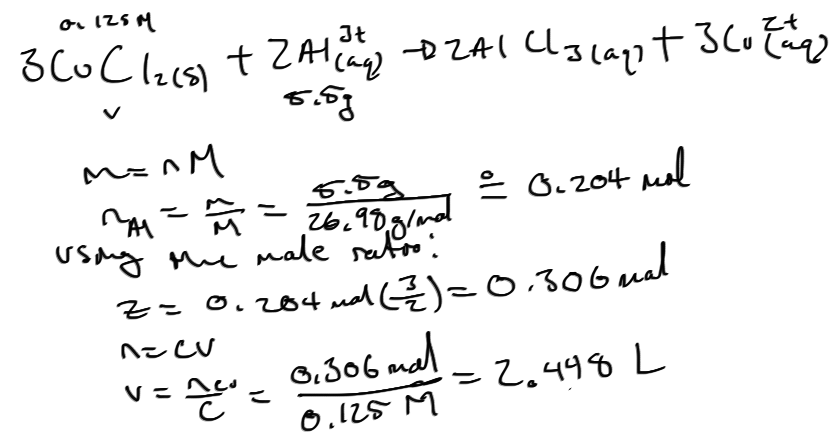 0.125M
3CuCl₂(s) + 2Al³⁺(aq) → 2AlCl₃(aq) + 3Cu²⁺(aq)
v 5.5g
m = nM
n_Al = m/M = 5.5g / 26.98g/mol ≐ 0.204 mol
using the mole ratio:
z = 0.204 mol (3/2) = 0.306 mol
n = cv
v = n_Cu/C = 0.306 mol / 0.125 M = 2.448 L